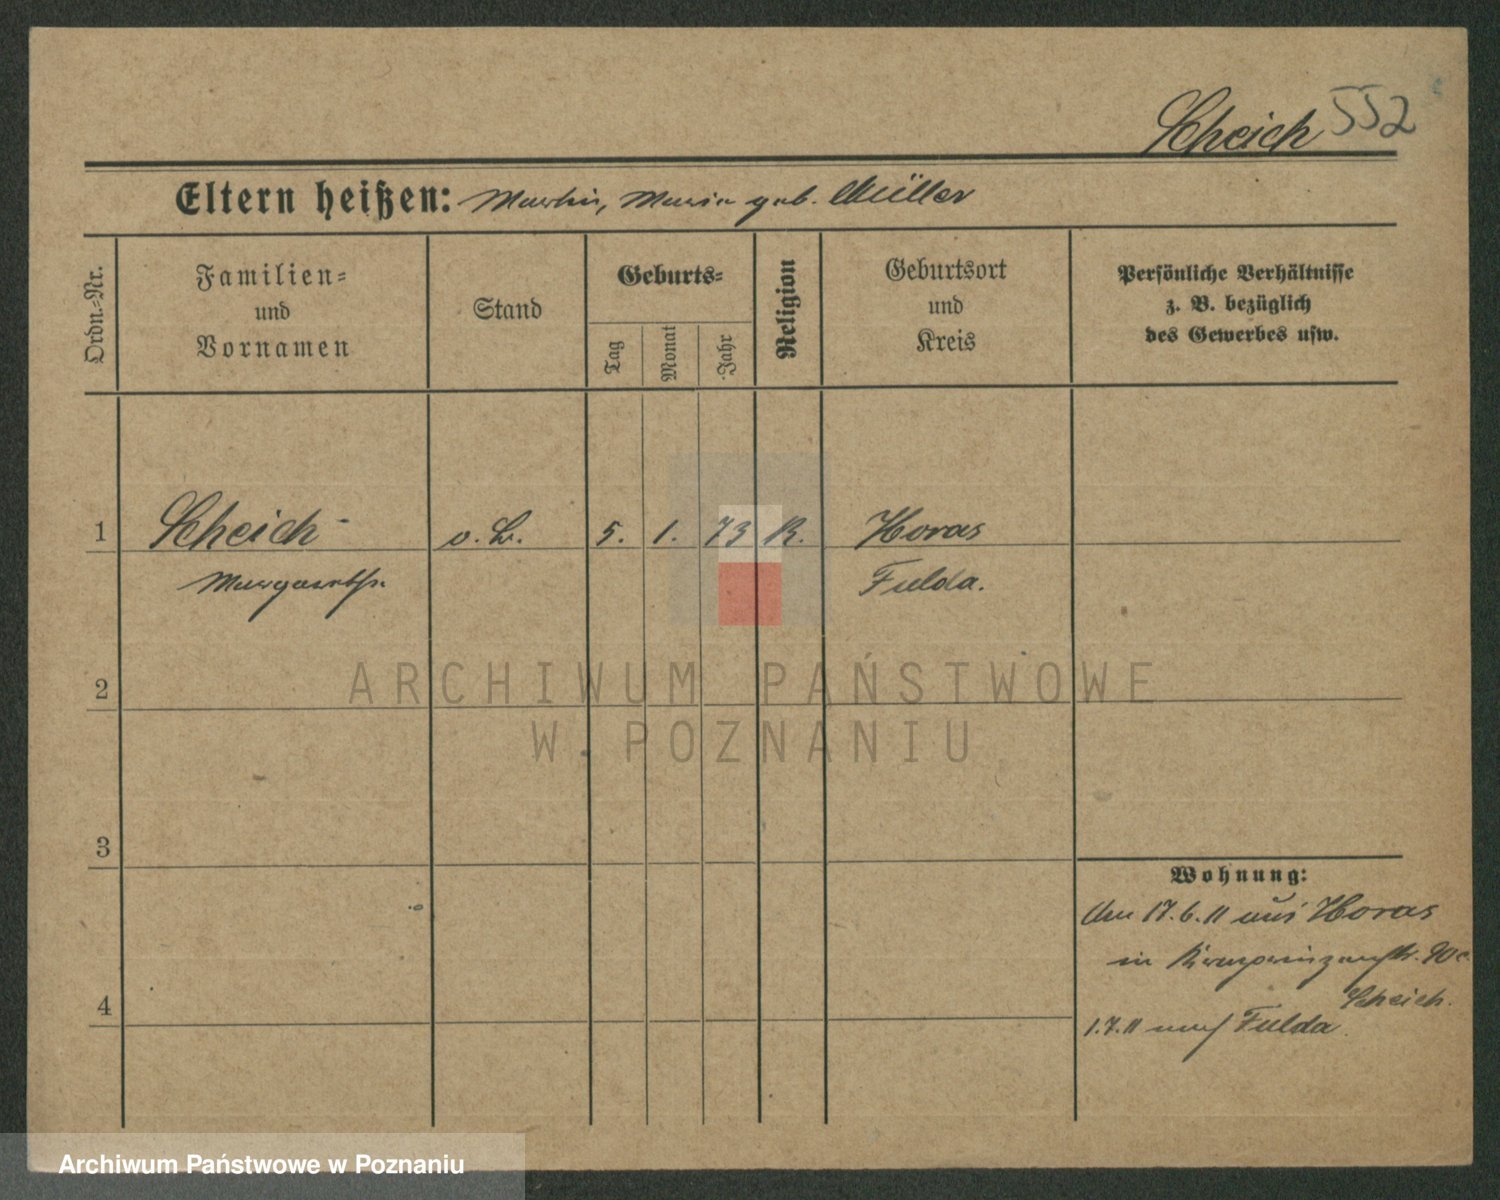 Scheich 552
Eltern heißen: Martin, Maria geb. Müller
Ordn.-Nr.
Familien-
und
Vornamen
Stand
Geburts-
Tag
Monat
Jahr
Religion
Geburtsort
und
Kreis
Persönliche Verhältnisse
z. B. bezüglich
des Gewerbes usw.
1 Scheich o. B. 5. 1. 73 K. Horas
Margarethe Fulda.
2
3
4
Wohnung:
Am 17.6.11 aus Horas
in Kronprinzenstr.
Scheich.
1.7.11 nach Fulda
ARCHIWUM PAŃSTWOWE
W POZNANIU
Archiwum Państwowe w Poznaniu